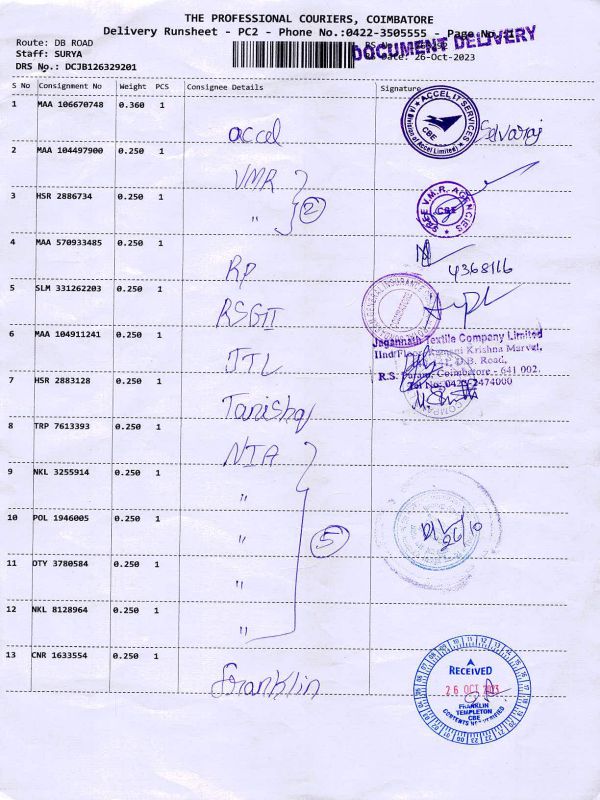 THE PROFESSIONAL COURIERS, COIMBATORE
Delivery Runsheet - PC2 - Phone No.:0422-3505555 - Page No.:1
DOCUMENT DELIVERY
Route: DB ROAD
Staff: SURYA
Date: 26-Oct-2023
DRS No.: DCJB126329201
S No Consignment No Weight PCS Consignee Details Signature
1 MAA 106670748 0.360 1 accel
ACCEL IT SERVICES (Division of Accel Limited) CBE
Selvaraj
2 MAA 104497900 0.250 1 VMR
3 HSR 2886734 0.250 1 " 2
SREE V.M.R. AGENCIES CBE
4 MAA 570933485 0.250 1 RP
5 SLM 331262203 0.250 1 RSGII
6 MAA 104911241 0.250 1 JTL
Jagannath Textile Company Limited
IInd Floor, Krishna Marvel,
D.B. Road,
Coimbatore - 641 002.
Tel No: 0422-2474000
7 HSR 2883128 0.250 1 Tanishq
8 TRP 7613393 0.250 1 NIA
9 NKL 3255914 0.250 1 "
10 POL 1946005 0.250 1 " 5
26/10
11 OTY 3780584 0.250 1 "
12 NKL 8128964 0.250 1 "
13 CNR 1633554 0.250 1 Franklin
RECEIVED
26 OCT
FRANKLIN
TEMPLETON
CBE
CONTENTS NOT VERIFIED